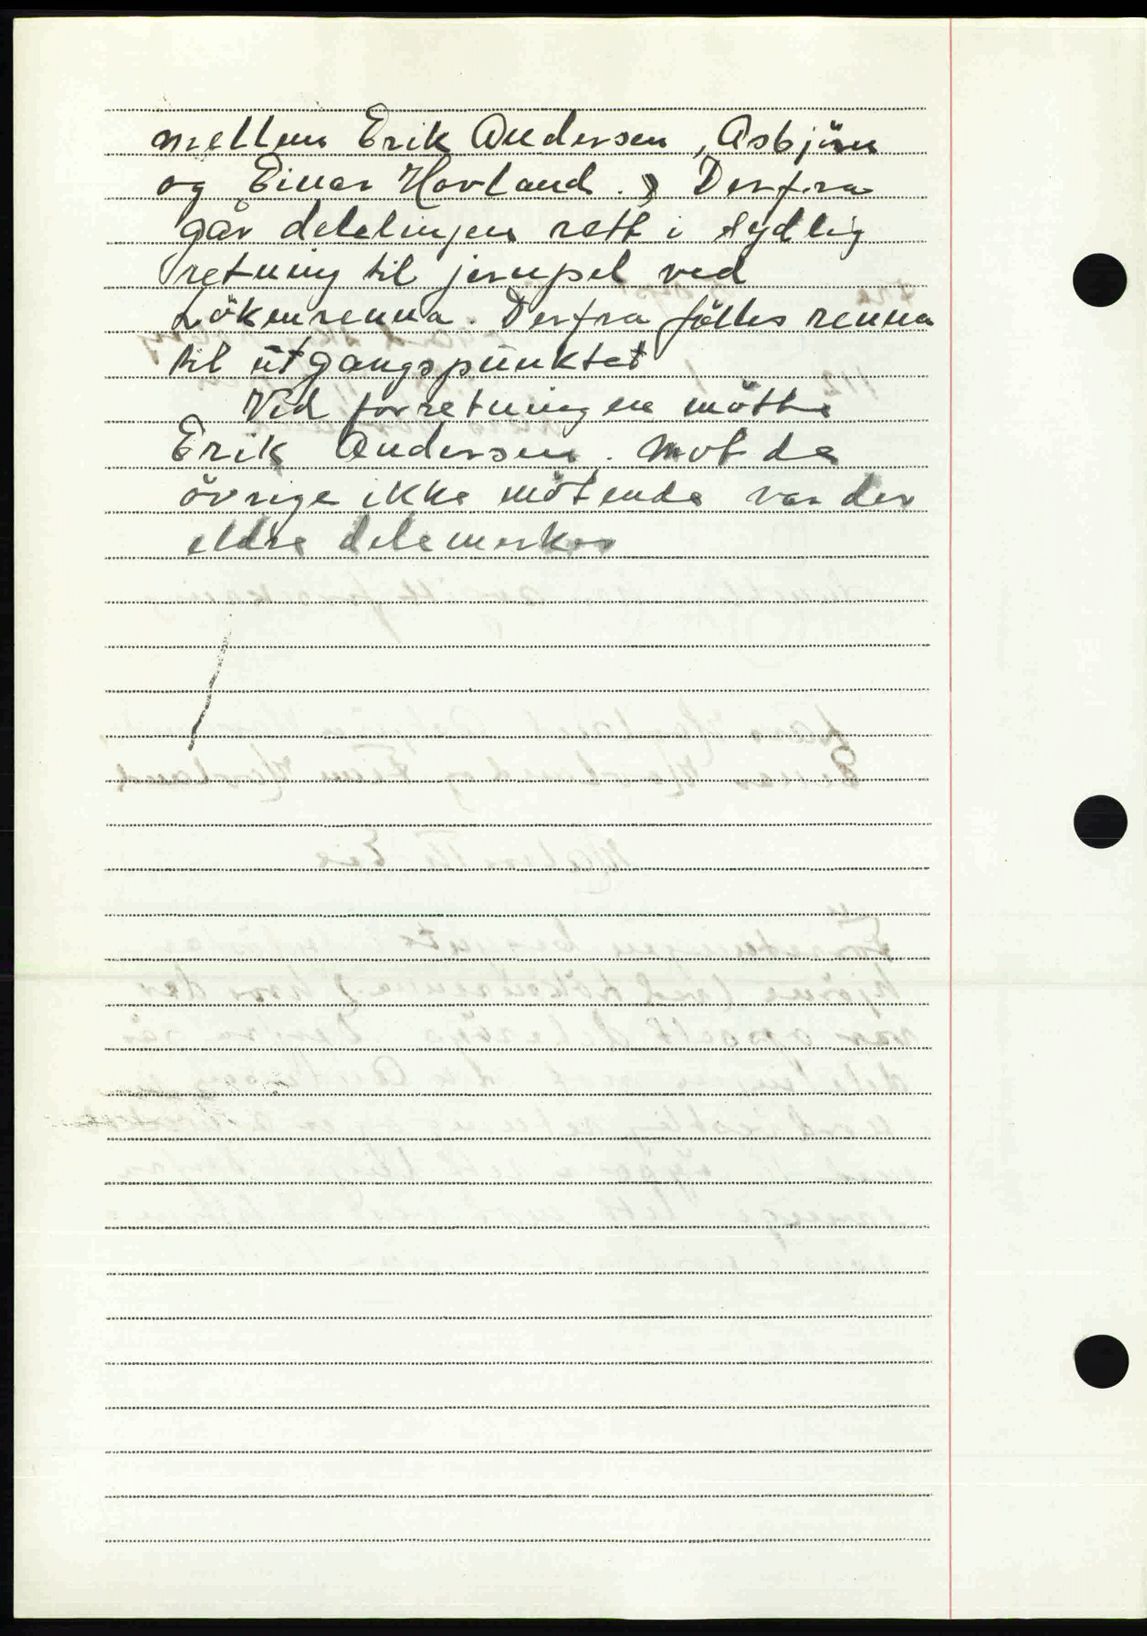 mellem Erik Andersen, Asbjörn
og Einar Hovland.) Derfra
går delelinjen rett i sydlig
retning til jernpel ved
Lökenrenna. Derfra fölles renna
til utgangspunktet
Ved forretningen mötte
Erik Andersen. Mot de
övrige ikke mötende var der
eldre delemerker